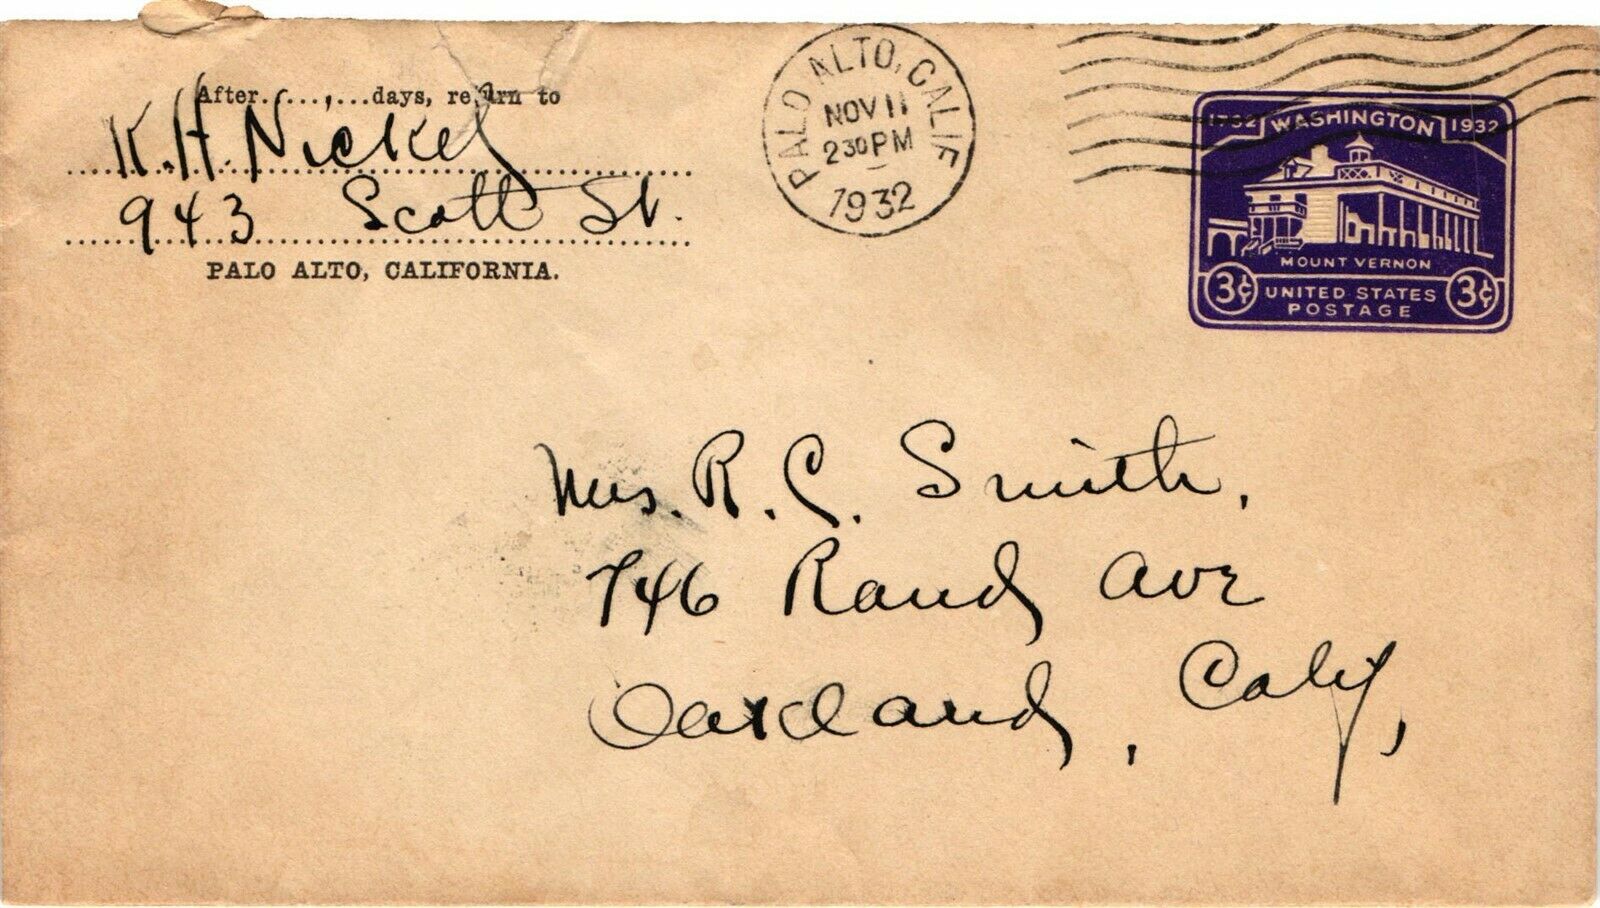 After.....,...days, return to
K. H. Nickel
943 Scott St.
PALO ALTO, CALIFORNIA.
PALO ALTO, CALIF.
NOV 11
230 PM
1932
1732 WASHINGTON 1932
MOUNT VERNON
3¢ UNITED STATES 3¢
POSTAGE
Mrs. R. C. Smith,
746 Rand Ave
Oakland, Calif,